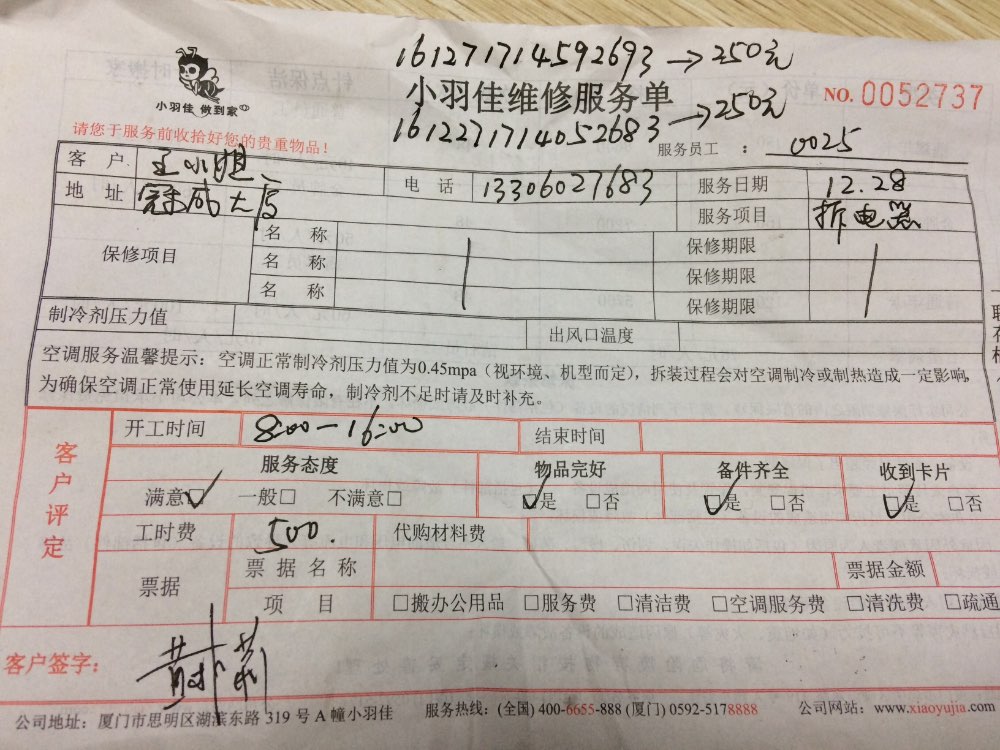 161271714592693→250元
小羽佳 做到家
小羽佳维修服务单
NO. 0052737
1612271714052683→250元
请您于服务前收拾好您的贵重物品!
服务员工 : 0025
客户 王小姐 电话 13306027683 服务日期 12.28
地址 大厦 服务项目 拆电器
保修项目 名称 保修期限
名称 保修期限
名称 保修期限
制冷剂压力值 出风口温度
空调服务温馨提示：空调正常制冷剂压力值为0.45mpa（视环境、机型而定），拆装过程会对空调制冷或制热造成一定影响，
为确保空调正常使用延长空调寿命，制冷剂不足时请及时补充。
客户评定
开工时间 8:00-16:00 结束时间
服务态度 物品完好 备件齐全 收到卡片
满意☑ 一般□ 不满意□ ☑是 □否 ☑是 □否 ☑是 □否
工时费 500. 代购材料费
票据 票据名称 票据金额
项目 □搬办公用品 □服务费 □清洁费 □空调服务费 □清洗费 □疏通
客户签字:
公司地址: 厦门市思明区湖滨东路 319 号 A 幢小羽佳 服务热线: (全国) 400-6655-888 (厦门) 0592-5178888 公司网站: www.xiaoyujia.com